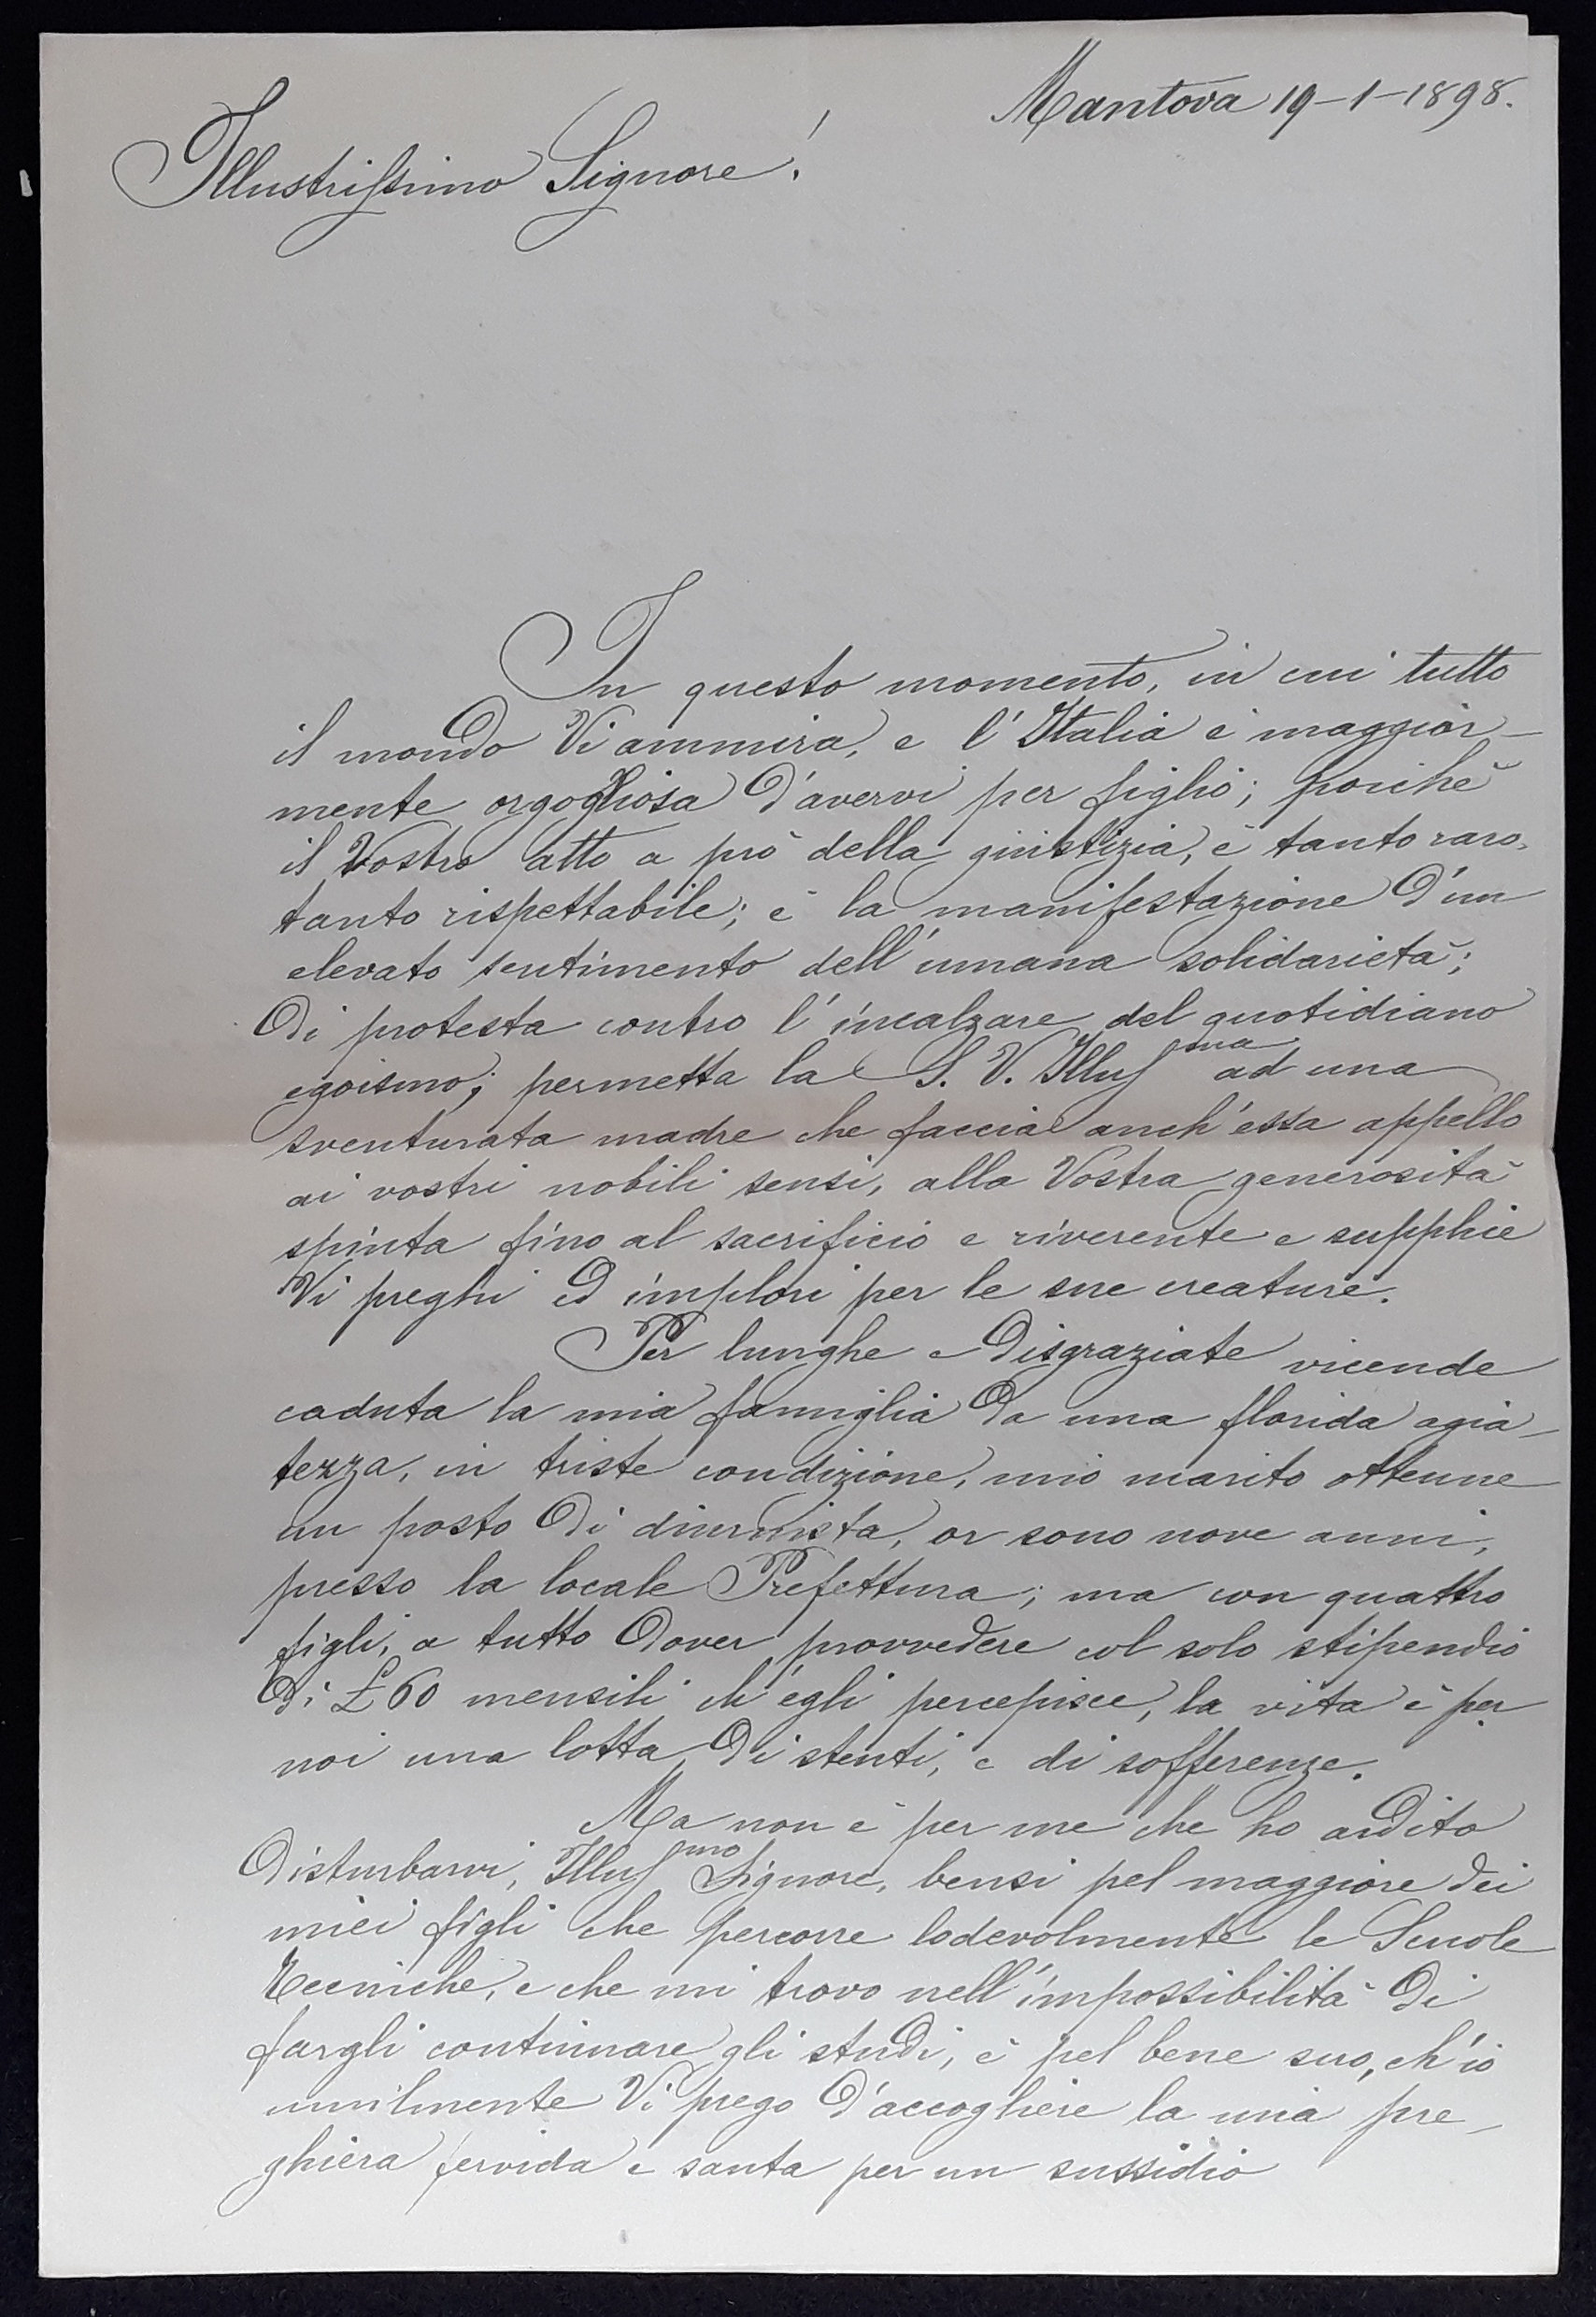 Mantova 19-1-1898.
Illustrissimo Signore!
In questo momento, in cui tutto
il mondo Vi ammira, e l'Italia è maggior-
mente orgogliosa d'avervi per figlio; poichè
il Vostro atto a prò della giustizia, è tanto raro,
tanto rispettabile; è la manifestazione d'un
elevato sentimento dell'umana solidarietà;
di protesta contro l'incalzare del quotidiano
egoismo; permetta la S. V. Illusma ad una
sventurata madre che faccia anch'essa appello
ai vostri nobili sensi, alla Vostra generosità
spinta fino al sacrificio e riverente e supplice
Vi preghi ed implori per le sue creature.
Per lunghe e disgraziate vicende
caduta la mia famiglia da una florida agia-
tezza, in triste condizione, mio marito ottenne
un posto di diurnista, or sono nove anni,
presso la locale Prefettura; ma con quattro
figli, a tutto dover provvedere col solo stipendio
di £ 60 mensili ch'egli percepisce, la vita è per
noi una lotta, di stenti, e di sofferenze.
Ma non è per me che ho ardito
disturbarvi, Illusmo Signore, bensì pel maggiore dei
miei figli che percorre lodevolmente le Scuole
Tecniche, e che mi trovo nell'impossibilità di
fargli continuare gli studi, è pel bene suo, ch'io
umilmente Vi prego d'accogliere la mia pre-
ghiera fervida e santa per un sussidio